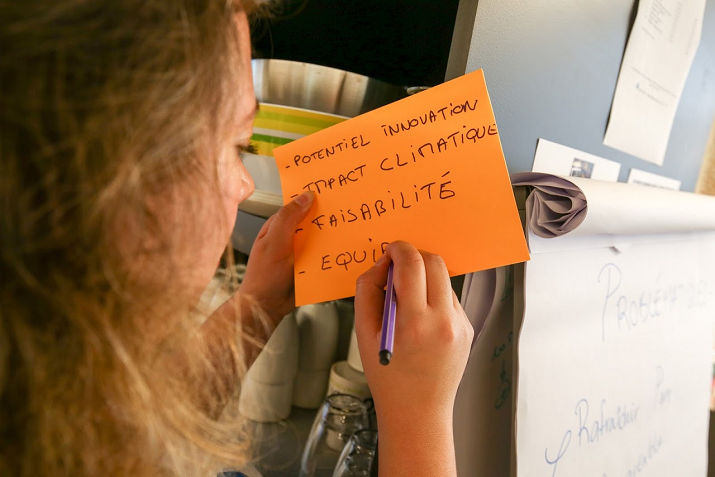 - POTENTIEL INNOVATION
- IMPACT CLIMATIQUE
- FAISABILITÉ
- EQUIP
PROBLÉMATIQUE
Rafraîchir